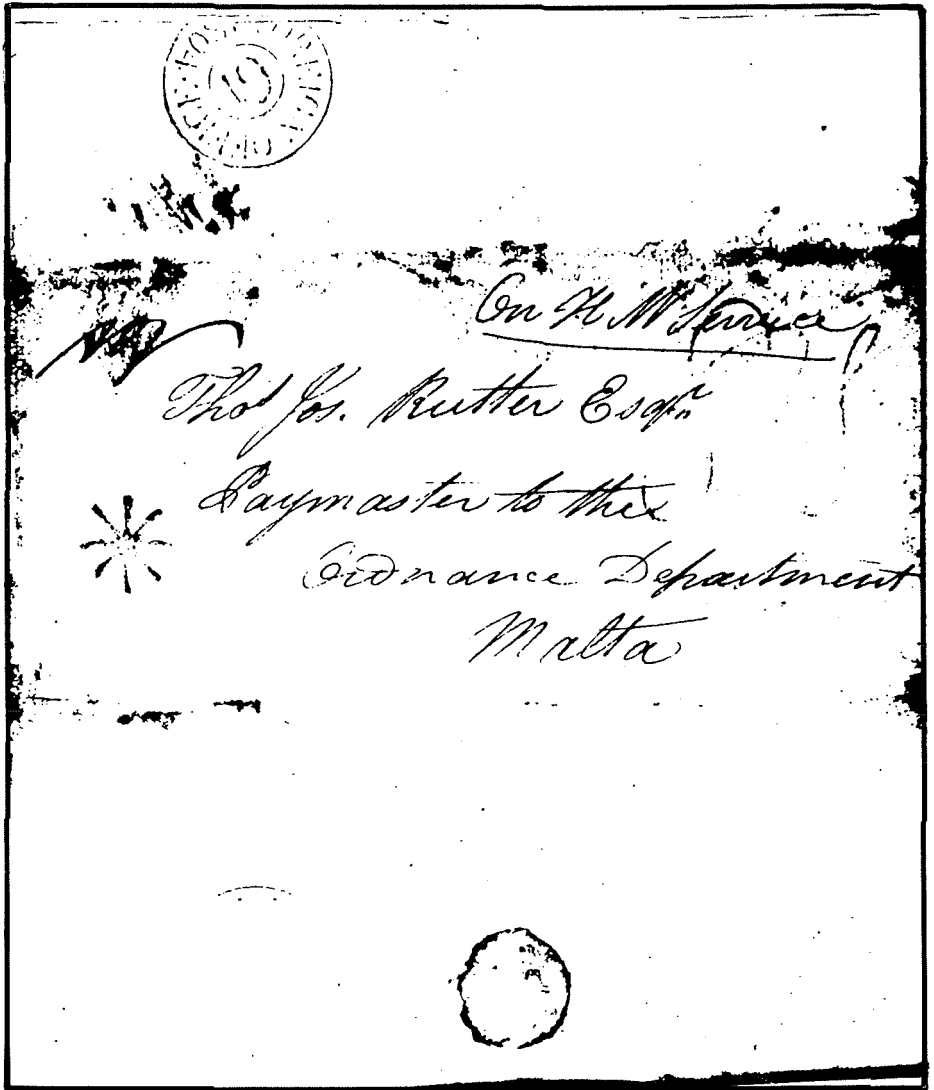 On H M Service
Thos Jos. Rutter Esqr.
Paymaster to the
Ordnance Department
Malta